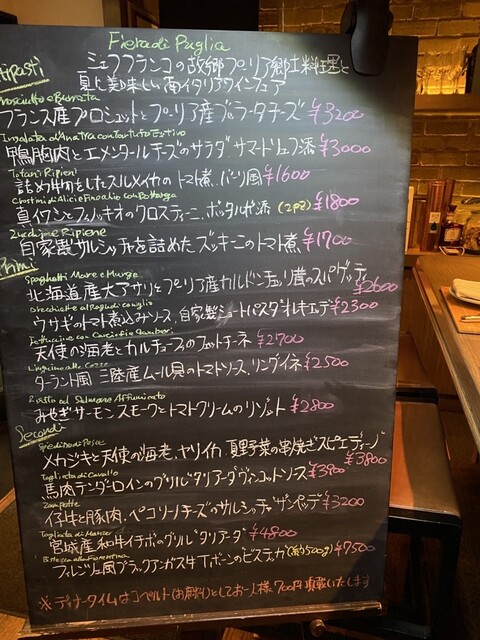 Fiera di Puglia
シェフフランコの故郷プーリア郷土料理と
夏に美味しい南イタリアワインフェア
Antipasti
Prosciutto e Burrata
フランス産プロシュットとプーリア産ブッラータチーズ ¥3200
Insalata d'Anatra con Tartufo Estivo
鴨胸肉とエメンタールチーズのサラダ、サマートリュフ添 ¥3000
Totani Ripieni
詰め物をしたスルメイカのトマト煮、バーリ風 ¥1600
Crostini di Alici e Finocchio con Bottarga
真イワシとフィノッキオのクロスティーニ、ボッタルガ添 (2pz) ¥1800
Zucchine Ripiene
自家製サルシッチャを詰めたズッキーニのトマト煮 ¥1700
Primi
Spaghetti Mare e Murge
北海道産大アサリとプーリア産カルドンチェッリ茸のスパゲッティ ¥2600
Orecchiette al Ragù di Coniglio
ウサギのトマト煮込みソース、自家製ショートパスタ"オレキエッテ" ¥2300
Fettuccine con Carciofi e Gamberi
天使の海老とカルチョーフィのフェットチーネ ¥2700
Linguine alle Cozze
ターラント風 三陸産ムール貝のトマトソース、リングイネ ¥2500
Risotto al Salmone Affumicato
みやぎサーモンスモークとトマトクリームのリゾット ¥2800
Secondi
Spiedino di Pesce
メカジキと天使の海老、ヤリイカ、夏野菜の串焼き"スピエディーノ" ¥3800
Tagliata di Cavallo
馬肉テンダーロインのグリル"タリアータ"ヴィンコットソース ¥3900
Zampette
仔牛と豚肉、ペコリーノチーズのサルシッチャ"ザンペッテ" ¥3200
Tagliata di Manzo
宮城産和牛イチボのグリル"タリアータ" ¥4800
Bistecca alla Fiorentina
フィレンツェ風ブラックアンガス牛Tボーンのビステッカ (約500g) ¥7500
※ディナータイムはコペルト(お通し)としてお一人様700円頂戴いたします